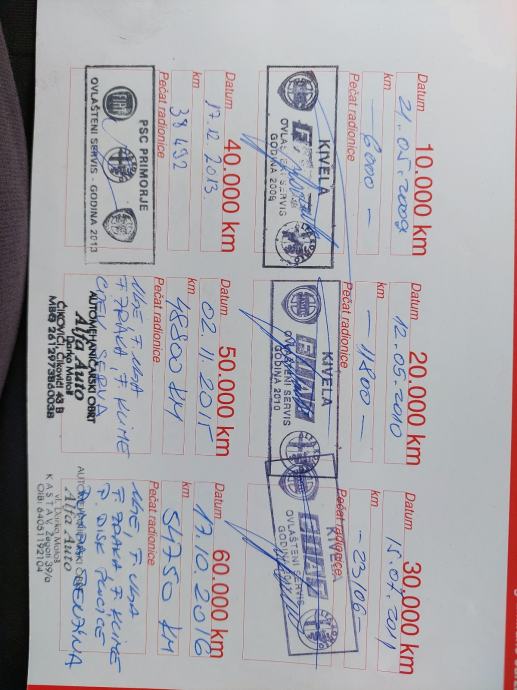 10.000 km
Datum 21.05.2009
km
- 6000 -
Pečat radionice
KIVELA
OVLAŠTENI SERVIS
GODINA 2009
20.000 km
Datum 12.05.2010
km
- 11800 -
Pečat radionice
KIVELA
FIAT
OVLAŠTENI SERVIS
GODINA 2010
30.000 km
Datum 15.07.2011
km
- 23106 -
Pečat radionice
KIVELA
FIAT
OVLAŠTENI SERVIS
GODINA
40.000 km
Datum 17.12.2013.
km 38492
Pečat radionice
PSC PRIMORJE
OVLAŠTENI SERVIS - GODINA 2013
50.000 km
Datum 02.11.2015
km 48800 KM
Pečat radionice
ULJE F. ULJA
F. ZRAKA, F. KLIME
AUTOMEHANIČARSKI OBRT
Alfa Auto
Darko Matoš
ČIKOVIĆI, Čikovići 43 B
MBO 2612973860038
60.000 km
Datum 17.10.2016
km 54750 KM
Pečat radionice
ULJE, F. ULJA
F. ZRAKA, F. KLIME
P. DISK PLOČICE
Alfa Auto
vl. Darko Matoš
KASTAV, Žegoti 39/a
OIB: 64051192104